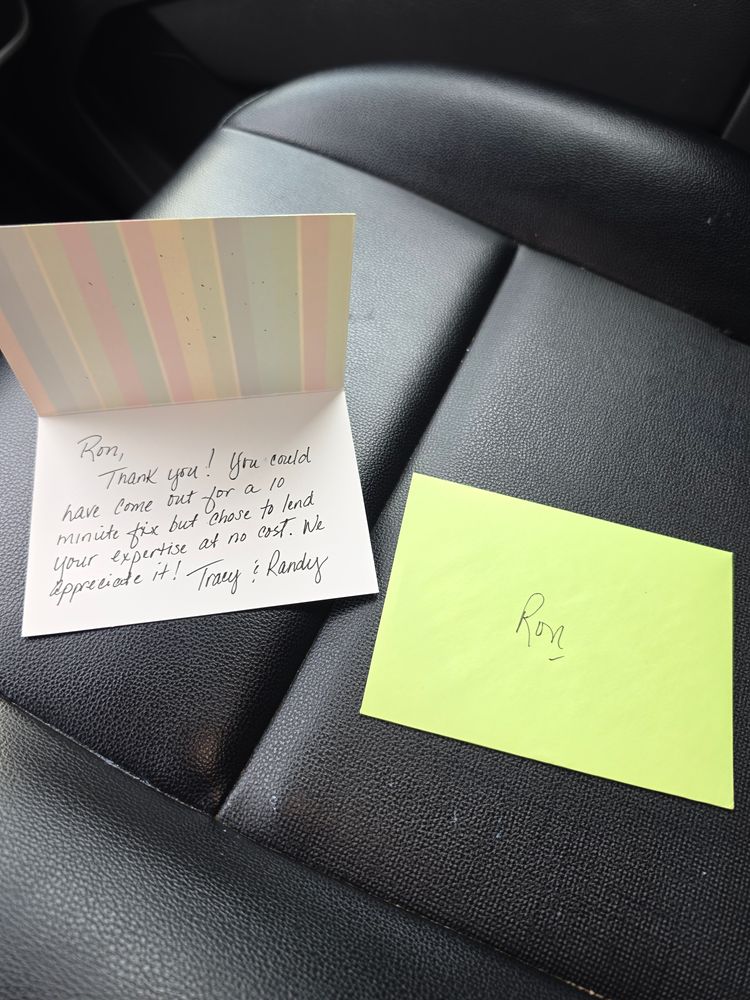 Ron,
Thank you! You could
have come out for a 10
minute fix but chose to lend
your expertise at no cost. We
appreciate it! Tracy & Randy
Ron